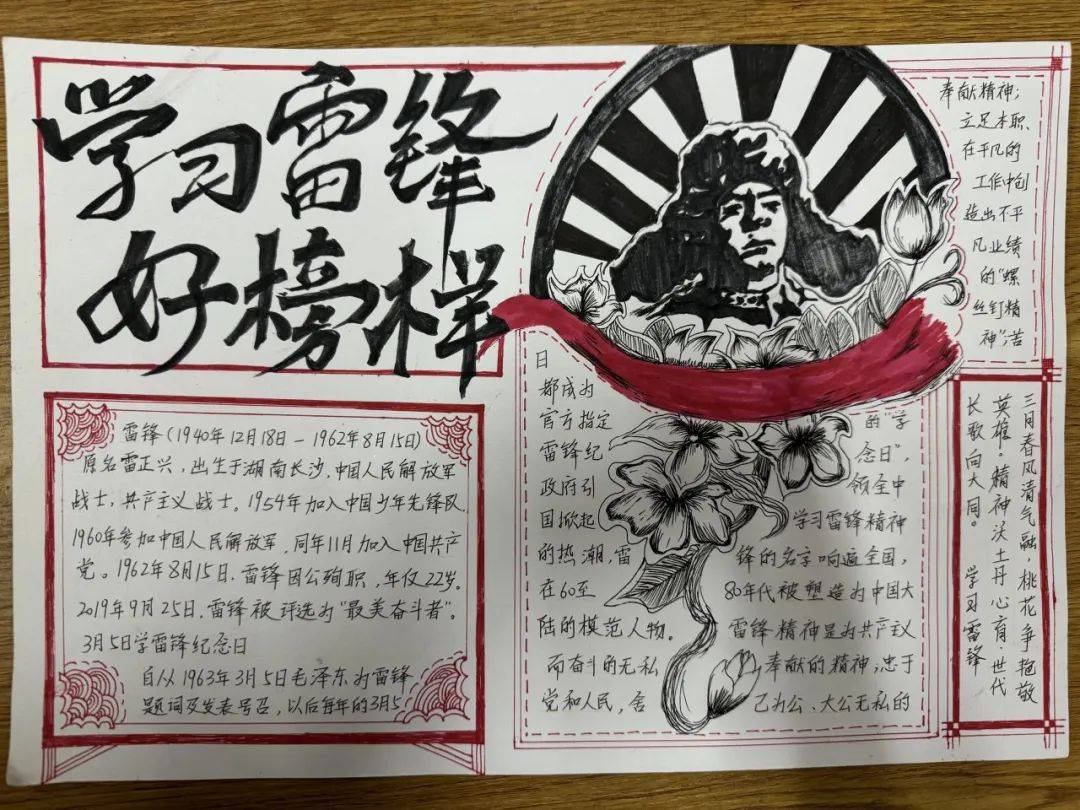 学习雷锋
好榜样
雷锋(1940年12月18日－1962年8月15日)
原名雷正兴,出生于湖南长沙,中国人民解放军
战士,共产主义战士。1954年加入中国少年先锋队.
1960年参加中国人民解放军,同年11月加入中国共产
党。1962年8月15日.雷锋因公殉职,年仅22岁.
2019年9月25日.雷锋被评选为“最美奋斗者”.
3月5日学雷锋纪念日
自从1963年3月5日毛泽东为雷锋
题词及发表号召,以后每年的3月5
日
都成为
官方指定 的“学
雷锋纪 念日”,
政府引 领全中
国掀起 学习雷锋精神
的热潮,雷 锋的名字响遍全国,
在60至 80年代被塑造为中国大
陆的模范人物。 雷锋精神是为共产主义
而奋斗的无私 奉献的精神;忠于
党和人民,舍 己为公、大公无私的
奉献精神;
立足本职
在平凡的
工作中创
造出不平
凡业绩
的“螺
丝钉精
神”;
三月春风清气融,桃花争艳敬
英雄。精神沃土丹心育.世代
长歌向大同。 学习雷锋